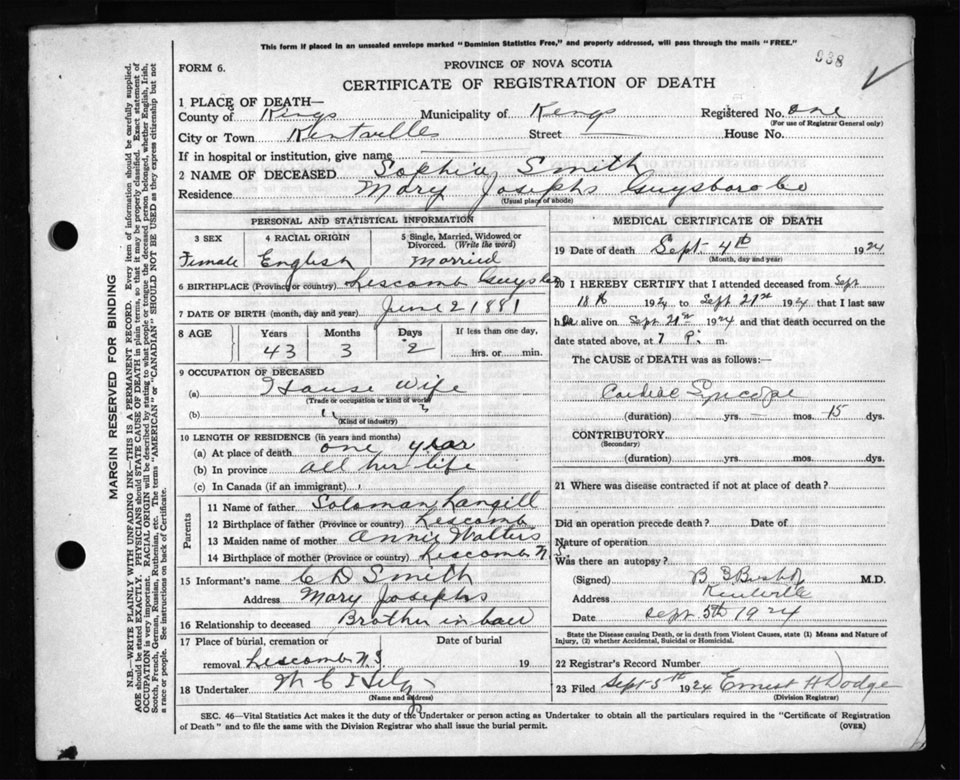 This form if placed in an unsealed envelope marked "Dominion Statistics Free," and properly addressed, will pass through the mails "FREE."
938
FORM 6.
PROVINCE OF NOVA SCOTIA
CERTIFICATE OF REGISTRATION OF DEATH
1 PLACE OF DEATH—
County of Kings Municipality of Kings Registered No. one
(For use of Registrar General only)
City or Town Kentville Street House No.
If in hospital or institution, give name
2 NAME OF DECEASED Sophia Smith
Residence Mary Josephs Guysboro Co
(Usual place of abode)
PERSONAL AND STATISTICAL INFORMATION
3 SEX 4 RACIAL ORIGIN 5 Single, Married, Widowed or Divorced. (Write the word)
Female English Married
6 BIRTHPLACE (Province or country) Liscomb Guysboro
7 DATE OF BIRTH (month, day and year) June 2 1881
8 AGE Years Months Days If less than one day,
43 3 2 hrs. or min.
9 OCCUPATION OF DECEASED
(a) House Wife
(Trade or occupation or kind of work)
(b) " "
(Kind of industry)
10 LENGTH OF RESIDENCE (in years and months)
(a) At place of death one year
(b) In province all her life
(c) In Canada (if an immigrant)
Parents
11 Name of father Soloman Langill
12 Birthplace of father (Province or country) Liscomb
13 Maiden name of mother Annie Walters
14 Birthplace of mother (Province or country) Liscomb N.S
15 Informant's name C D Smith
Address Mary Josephs
16 Relationship to deceased Brother in law
17 Place of burial, cremation or Date of burial
removal Liscomb N.S 19
18 Undertaker
(Name and address)
MEDICAL CERTIFICATE OF DEATH
19 Date of death Sept 4th 1924
(Month, day and year)
20 I HEREBY CERTIFY that I attended deceased from Sept
18th 1924 to Sept 21st 1924 that I last saw
her alive on Sept 21st 1924 and that death occurred on the
date stated above, at 7 P. m.
The CAUSE of DEATH was as follows:
Cardial Syncope
(duration) yrs. mos. 15 dys.
CONTRIBUTORY
(Secondary)
(duration) yrs. mos. dys.
21 Where was disease contracted if not at place of death?
Did an operation precede death? Date of
Nature of operation
Was there an autopsy?
(Signed) M.D.
Address Kentville
Date Sept 5th 1924
State the Disease causing Death, or in death from Violent Causes, state (1) Means and Nature of
Injury, (2) whether Accidental, Suicidal or Homicidal.
22 Registrar's Record Number
23 Filed Sept 5th 1924 Ernest H Dodge
(Division Registrar)
SEC. 46—Vital Statistics Act makes it the duty of the Undertaker or person acting as Undertaker to obtain all the particulars required in the "Certificate of Registration
of Death" and to file the same with the Division Registrar who shall issue the burial permit. (OVER)
MARGIN RESERVED FOR BINDING
N.B.—WRITE PLAINLY WITH UNFADING INK—THIS IS A PERMANENT RECORD. Every item of information should be carefully supplied.
AGE should be stated EXACTLY. PHYSICIANS should STATE CAUSE OF DEATH in plain terms, so that it may be properly classified. Exact statement of
OCCUPATION is very important. RACIAL ORIGIN will be described by stating to what people or tongue the deceased person belonged, whether English, Irish,
Scotch, French, German, Russian, Ruthenian, etc. The terms "AMERICAN" or "CANADIAN" SHOULD NOT BE USED as they express citizenship but not
a race or people. See instructions on back of Certificate.